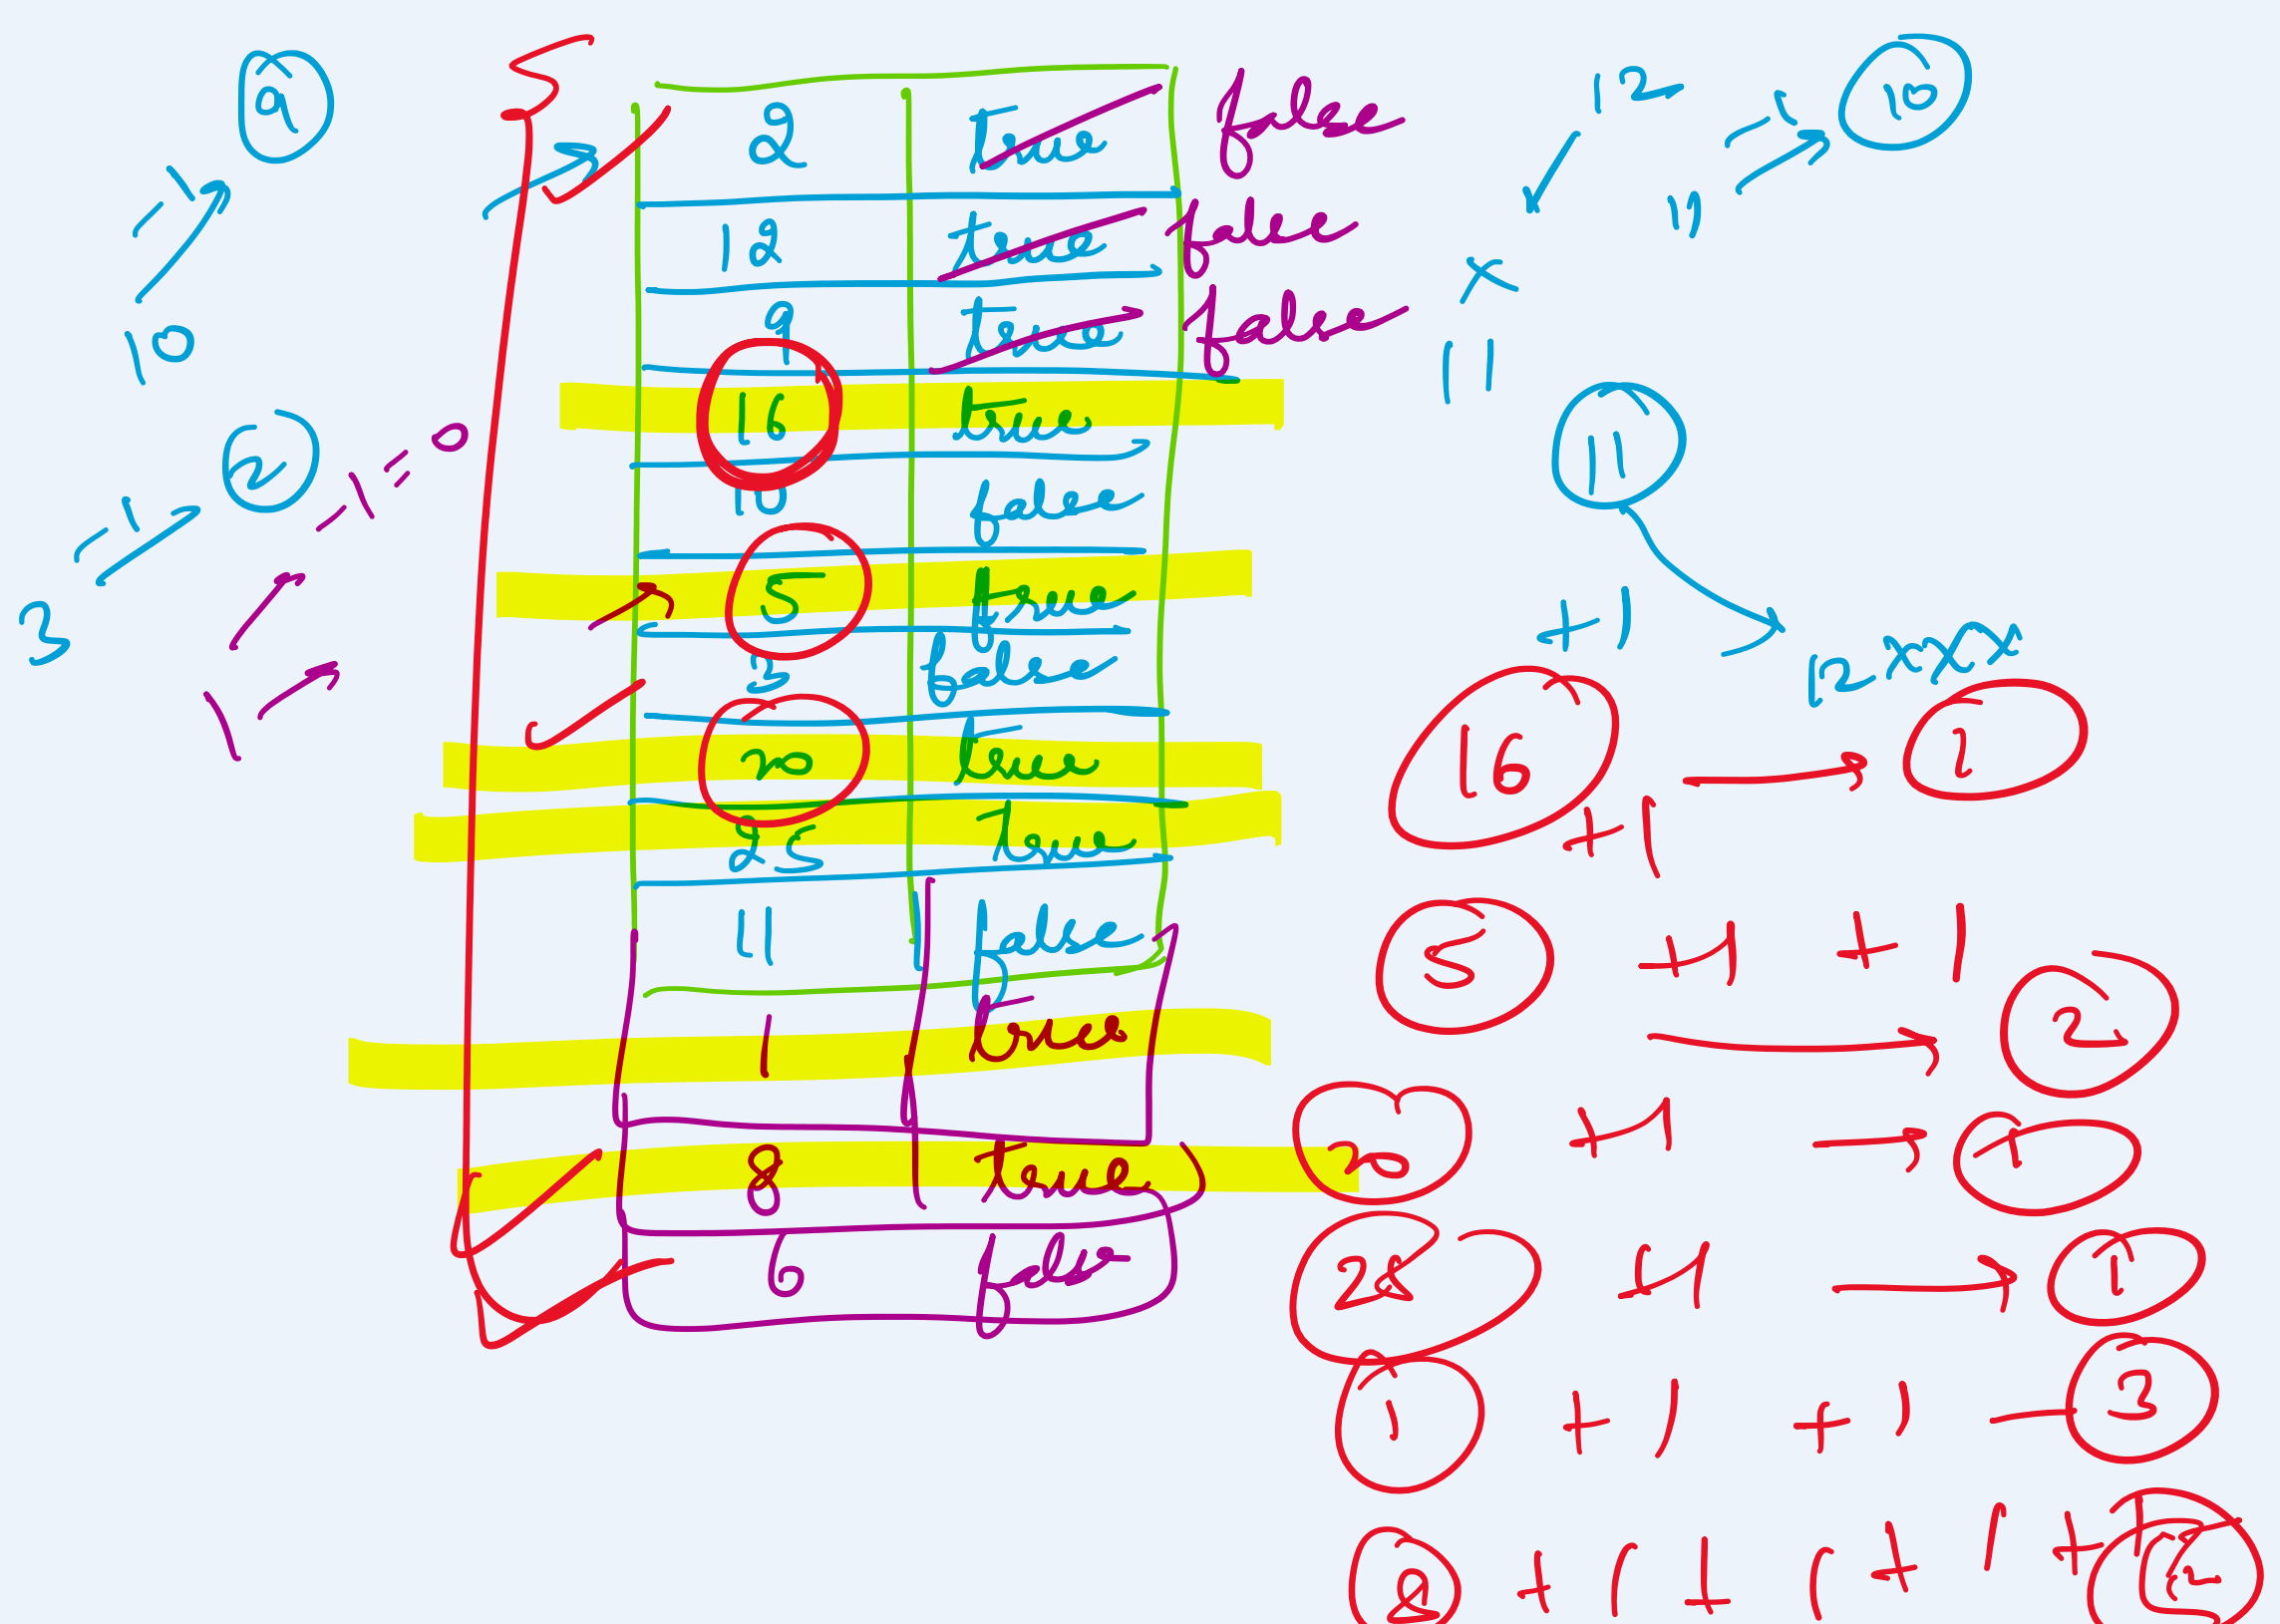 9
-1
10
2
-1
-1 = 0
3
1
2 true false
12 true false
9 true false
16 true
10 false
5 true
3 false
20 true
25 True
11 false
1 true
8 True
6 false
12
-1
10
11
x
11
11
+1
12 x x x x
16 +1 1
5 +1 +1 2
20 +1 1
+1 1
1 +1 +1 3
+1 +1 +1 +1